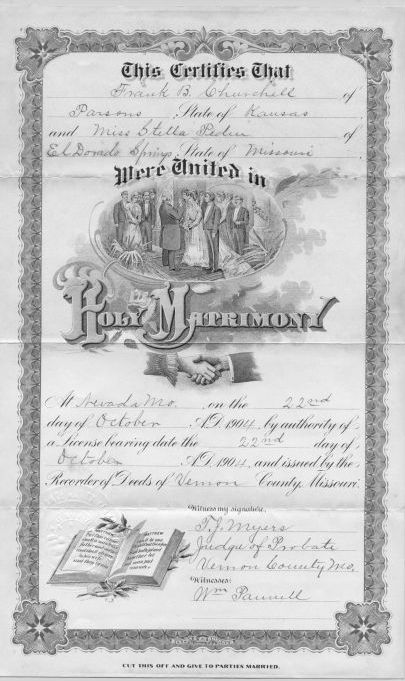 This Certifies That
Frank B. Churchill of
Parsons, State of Kansas
and Miss Stella of
El Dorado Springs State of Missouri
Were United in
Holy Matrimony
At Nevada Mo. on the 22nd
day of October A.D. 1904, by authority of
a License bearing date the 22nd day of
October A.D. 1904, and issued by the
Recorder of Deeds of Vernon County, Missouri.
Witness my signature,
T. J. Myers
Judge of Probate
Vernon County Mo.
Witnesses:
Wm
MATTHEW
CUT THIS OFF AND GIVE TO PARTIES MARRIED.